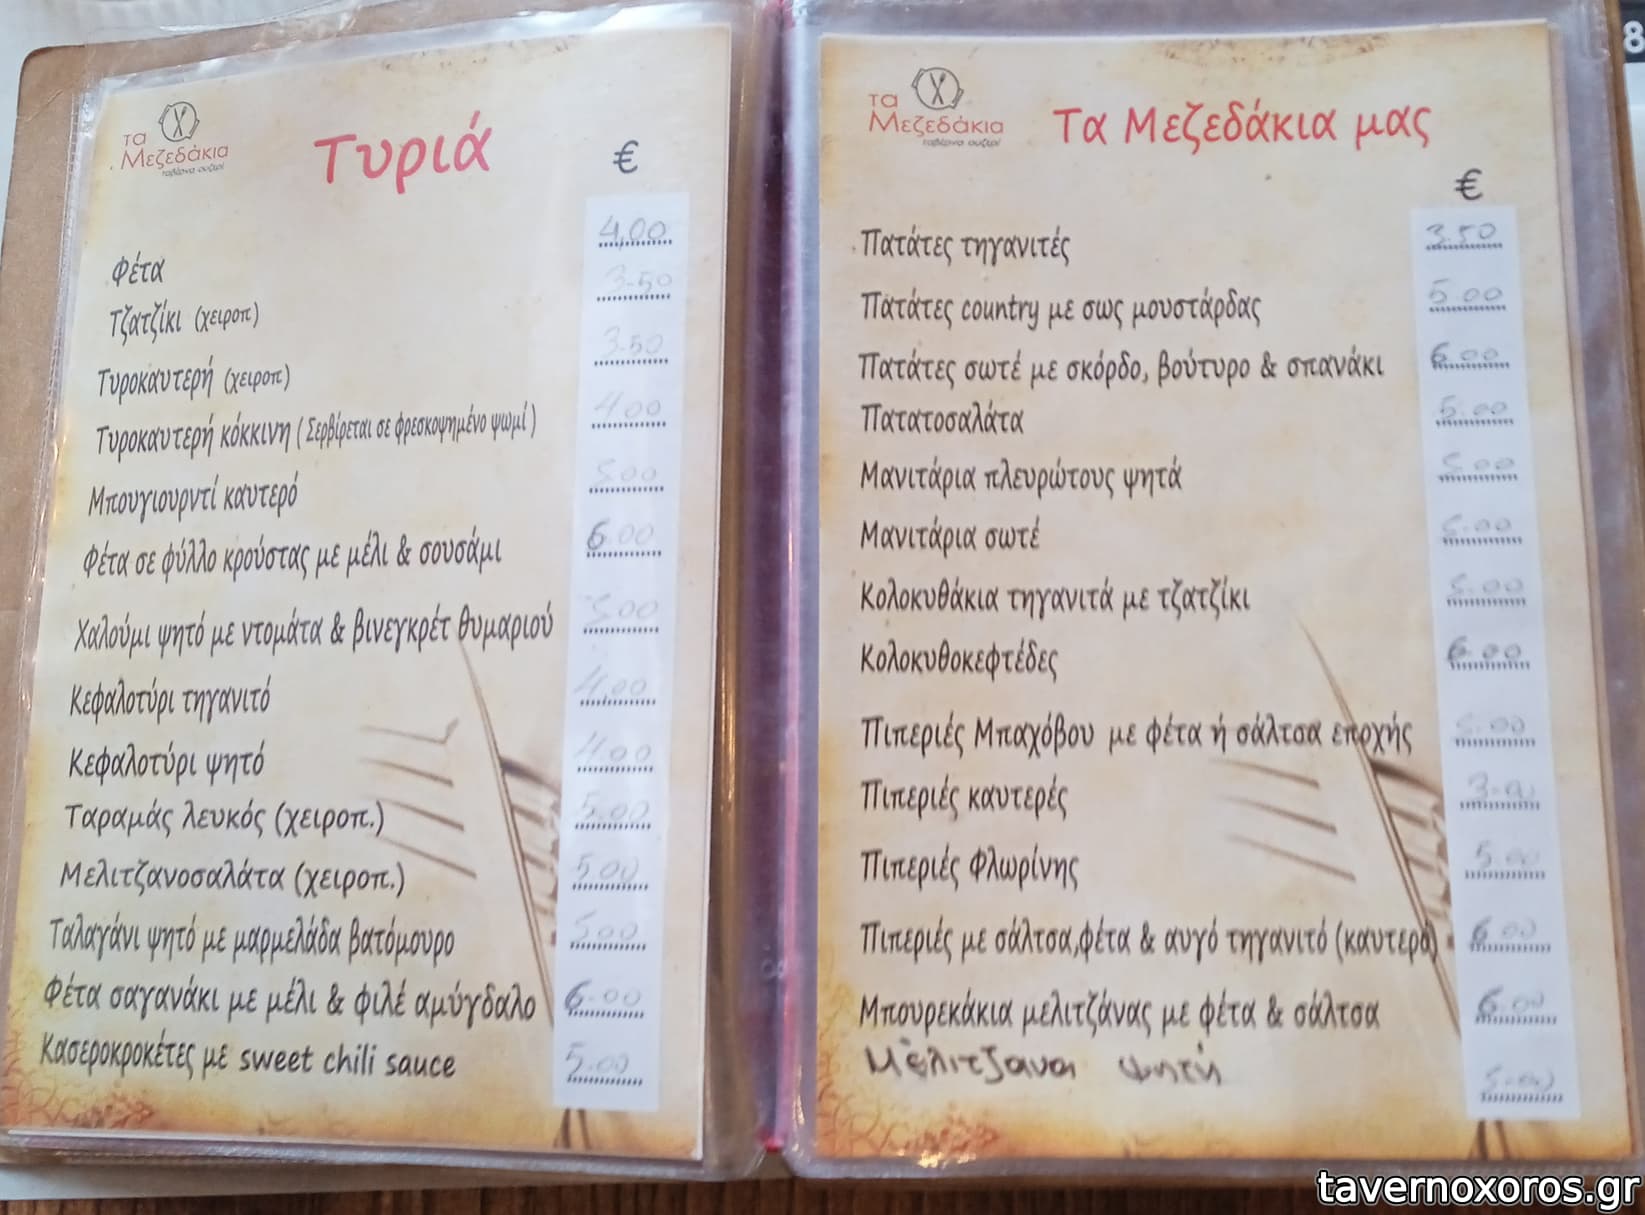 τα
Μεζεδάκια
ταβέρνα ουζερί
Τυριά
€
Φέτα 4,00
Τζατζίκι (χειροπ) 3-50
Τυροκαυτερή (χειροπ) 3-50
Τυροκαυτερή κόκκινη ( Σερβίρεται σε φρεσκοψημένο ψωμί ) 4.00
Μπουγιουρντί καυτερό 5.00
Φέτα σε φύλλο κρούστας με μέλι & σουσάμι 6.00
Χαλούμι ψητό με ντομάτα & βινεγκρέτ θυμαριού 5.00
Κεφαλοτύρι τηγανιτό 4.00
Κεφαλοτύρι ψητό 4.00
Ταραμάς λευκός (χειροπ.) 5.00
Μελιτζανοσαλάτα (χειροπ.) 5.00
Ταλαγάνι ψητό με μαρμελάδα βατόμουρο 5.00
Φέτα σαγανάκι με μέλι & φιλέ αμύγδαλο 6.00
Κασεροκροκέτες με sweet chili sauce 5.00
τα
Μεζεδάκια
ταβέρνα ουζερί
Τα Μεζεδάκια μας
€
Πατάτες τηγανιτές 3.50
Πατάτες country με σως μουστάρδας 5.00
Πατάτες σωτέ με σκόρδο, βούτυρο & σπανάκι 6.00
Πατατοσαλάτα 5.00
Μανιτάρια πλευρώτους ψητά 5.00
Μανιτάρια σωτέ 5.00
Κολοκυθάκια τηγανιτά με τζατζίκι 5.00
Κολοκυθοκεφτέδες 6.00
Πιπεριές Μπαχόβου με φέτα ή σάλτσα εποχής 5.00
Πιπεριές καυτερές 3.00
Πιπεριές Φλωρίνης 5.00
Πιπεριές με σάλτσα,φέτα & αυγό τηγανιτό (καυτερό) 6.00
Μπουρεκάκια μελιτζάνας με φέτα & σάλτσα 6.00
Μελιτζανα ψητή 5.00
8
tavernoxoros.gr